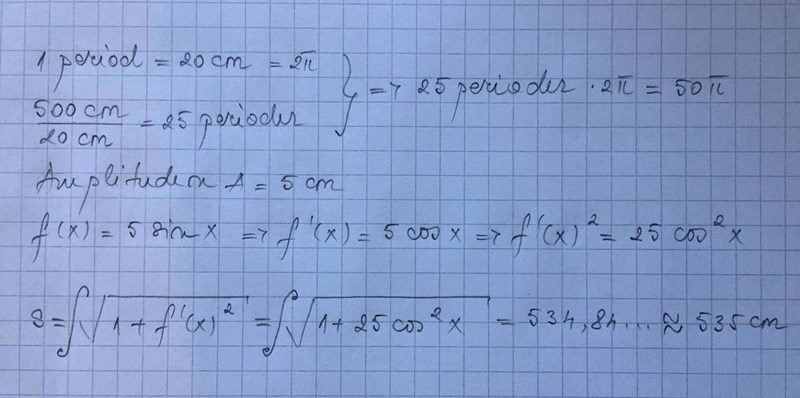 1 period = 20 cm = 2π
500 cm / 20 cm = 25 perioder } => 25 perioder · 2π = 50π
Amplituden A = 5 cm
f(x) = 5 sin x => f'(x) = 5 cos x => f'(x)² = 25 cos² x
s = ∫√(1 + f'(x)²) = ∫√(1 + 25 cos² x) = 534,84... ≈ 535 cm